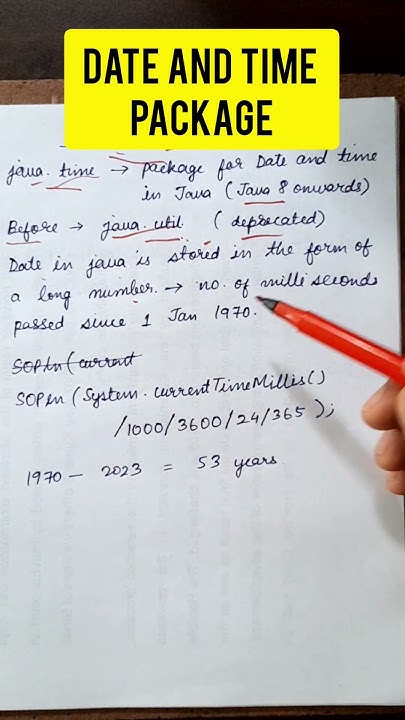 DATE AND TIME
PACKAGE
java.time → package for Date and time
in Java (Java 8 onwards)
Before → java.util (deprecated)
Date in java is stored in the form of
a long number. → no. of milliseconds
passed since 1 Jan 1970.
SOPln(current
SOPln(System.currentTimeMillis()
/1000/3600/24/365);
1970 - 2023 = 53 years.